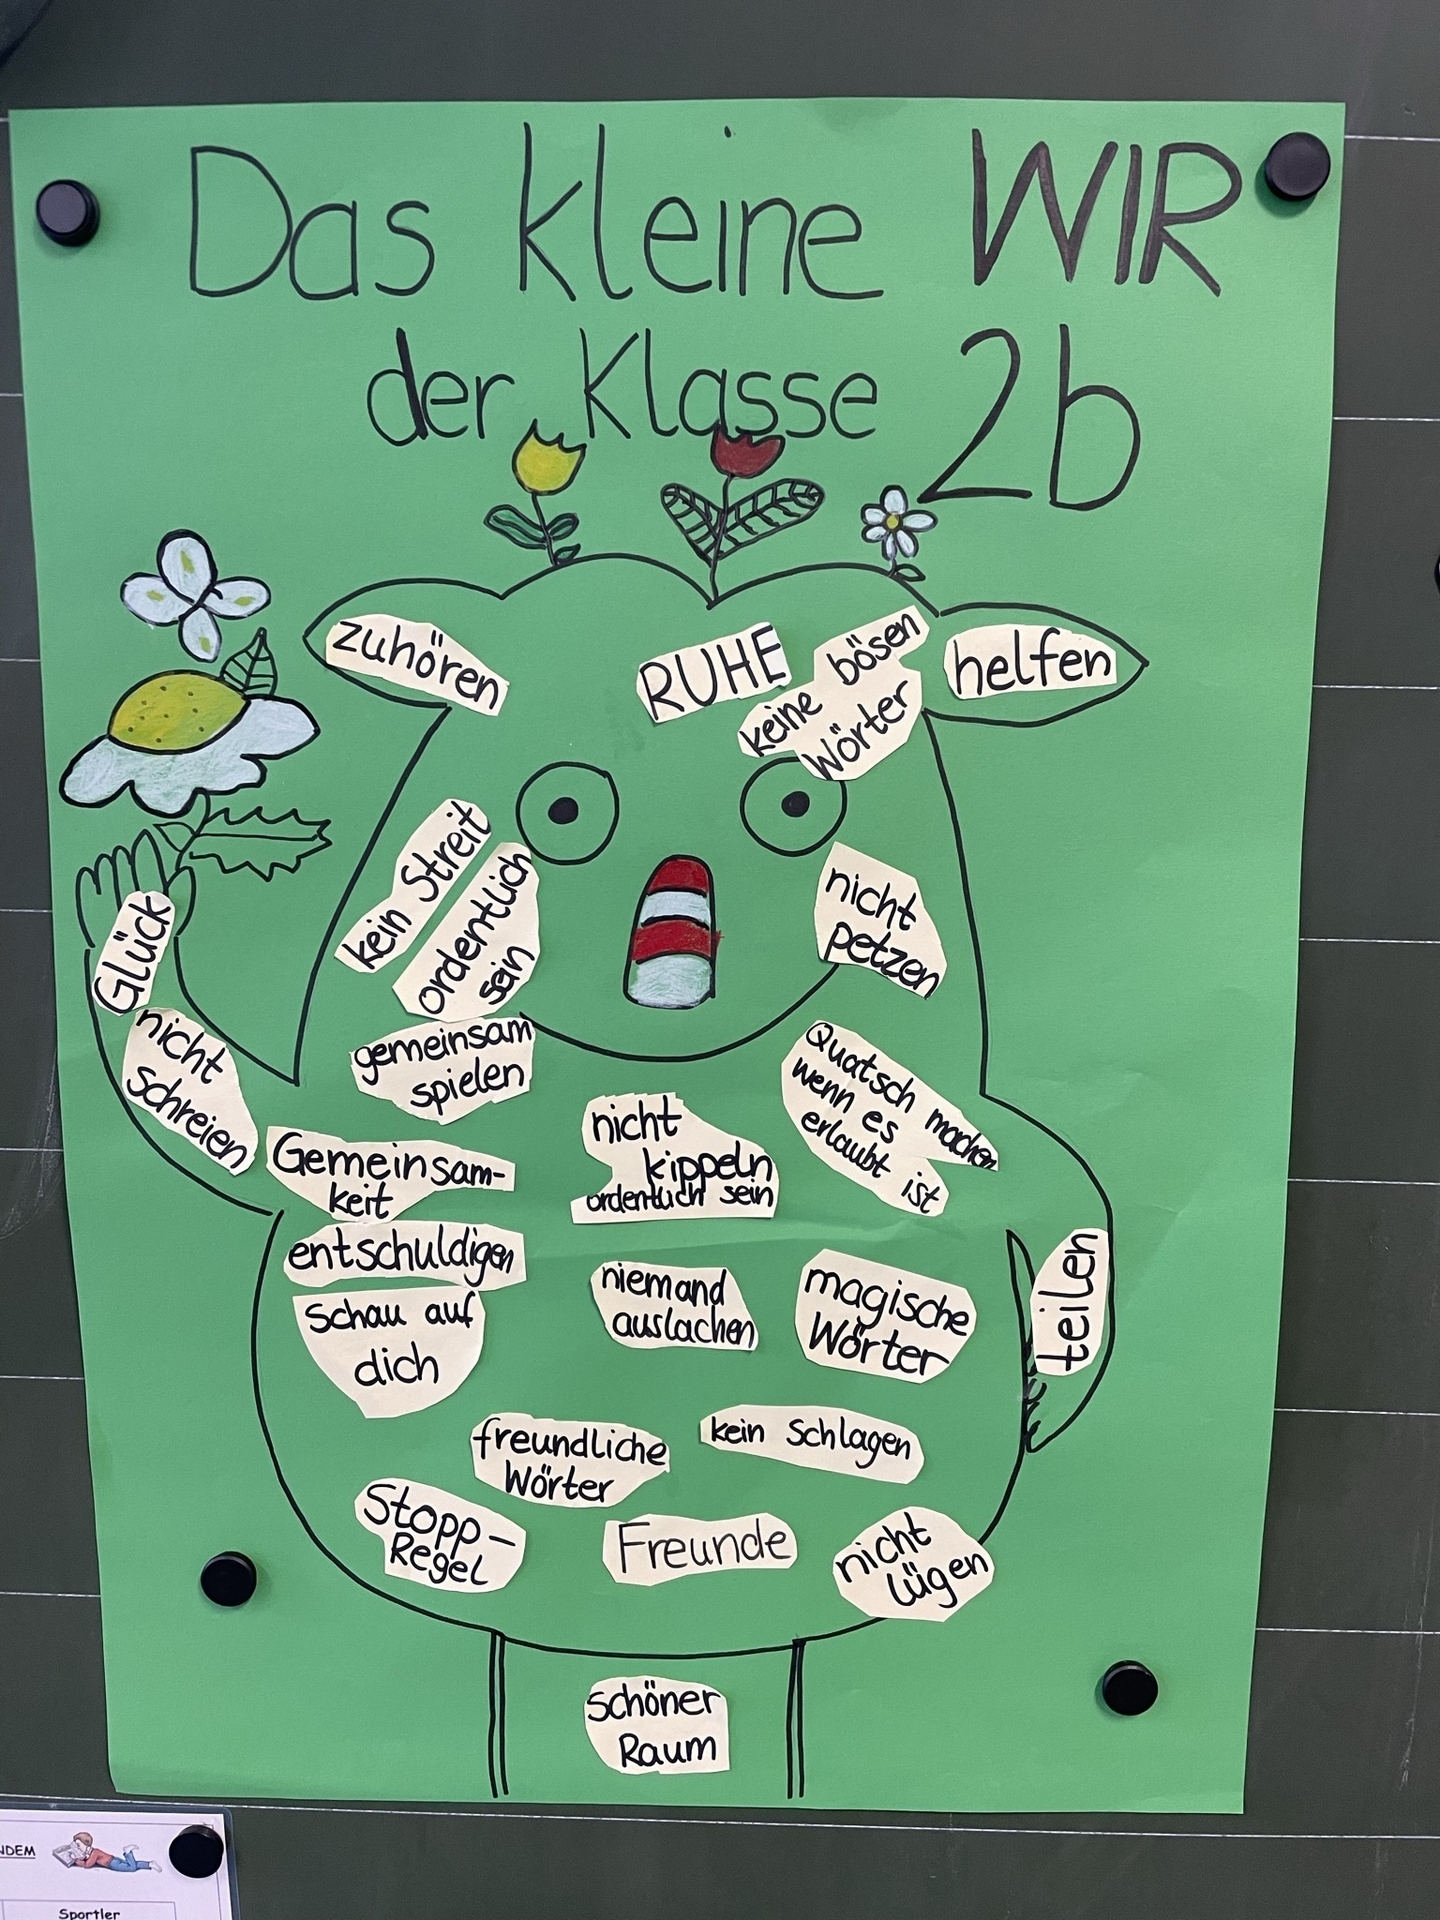 Das kleine WIR
der Klasse 2b
zuhören
RUHE
keine bösen
Wörter
helfen
kein Streit
ordentlich
sein
nicht
petzen
Glück
nicht
schreien
gemeinsam
spielen
Quatsch machen
wenn es
erlaubt ist
nicht
kippeln
ordentlich sein
Gemeinsam-
keit
entschuldigen
Schau auf
dich
niemand
auslachen
magische
Wörter
teilen
freundliche
Wörter
kein Schlagen
Stopp-
Regel
Freunde
nicht
lügen
schöner
Raum
Sportler